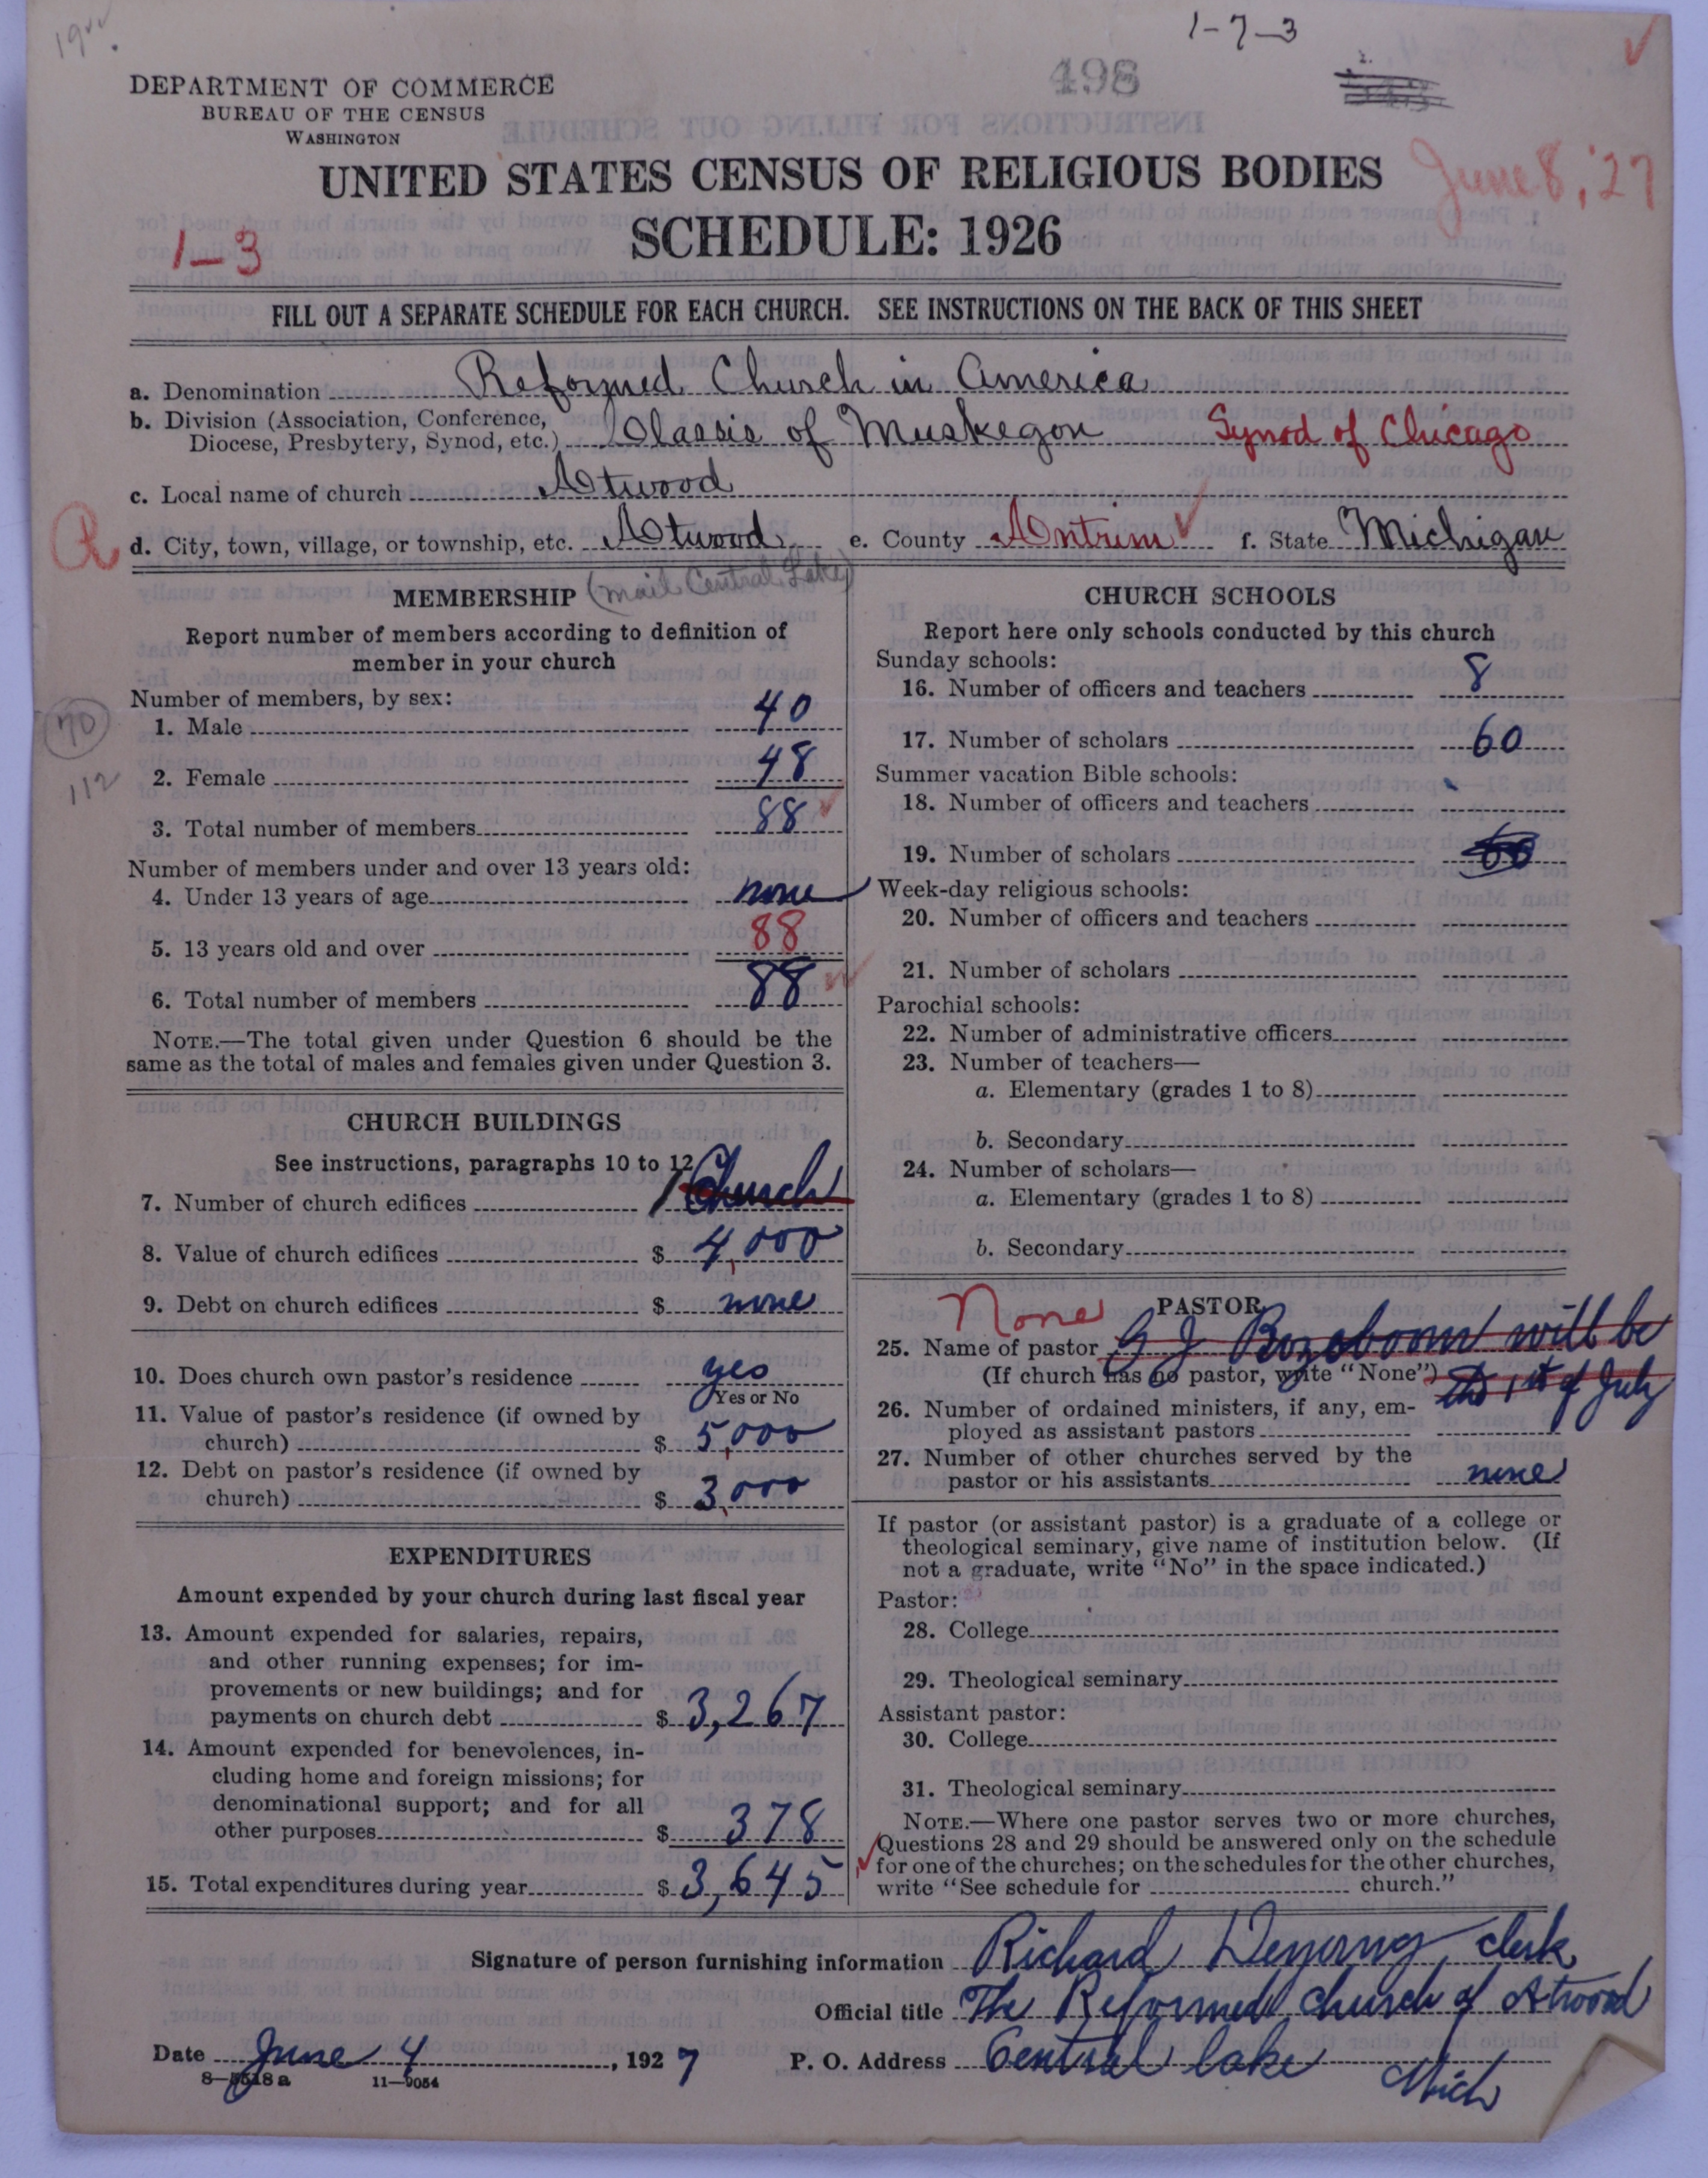 1-7-3
498
DEPARTMENT OF COMMERCE
BUREAU OF THE CENSUS
WASHINGTON
UNITED STATES CENSUS OF RELIGIOUS BODIES
June 8, '27
SCHEDULE: 1926
1-3
FILL OUT A SEPARATE SCHEDULE FOR EACH CHURCH. SEE INSTRUCTIONS ON THE BACK OF THIS SHEET
a. Denomination Reformed Church in America
b. Division (Association, Conference,
Diocese, Presbytery, Synod, etc.) Classis of Muskegon Synod of Chicago
c. Local name of church Atwood
R
d. City, town, village, or township, etc. Atwood e. County Antrim ✓ f. State Michigan
(mail Central Lake)
MEMBERSHIP
Report number of members according to definition of
member in your church
Number of members, by sex:
1. Male 40
70
2. Female 48
112
3. Total number of members 88
Number of members under and over 13 years old:
4. Under 13 years of age none
5. 13 years old and over 88
6. Total number of members 88
NOTE.—The total given under Question 6 should be the
same as the total of males and females given under Question 3.
CHURCH BUILDINGS
See instructions, paragraphs 10 to 12
7. Number of church edifices 1 Church
8. Value of church edifices $ 4,000
9. Debt on church edifices $ none
10. Does church own pastor's residence yes
Yes or No
11. Value of pastor's residence (if owned by
church) $ 5,000
12. Debt on pastor's residence (if owned by
church) $ 3,000
EXPENDITURES
Amount expended by your church during last fiscal year
13. Amount expended for salaries, repairs,
and other running expenses; for im-
provements or new buildings; and for
payments on church debt $ 3,267
14. Amount expended for benevolences, in-
cluding home and foreign missions; for
denominational support; and for all
other purposes $ 378
15. Total expenditures during year $ 3,645
CHURCH SCHOOLS
Report here only schools conducted by this church
Sunday schools:
16. Number of officers and teachers 8
17. Number of scholars 60
Summer vacation Bible schools:
18. Number of officers and teachers
19. Number of scholars 60
Week-day religious schools:
20. Number of officers and teachers
21. Number of scholars
Parochial schools:
22. Number of administrative officers
23. Number of teachers—
a. Elementary (grades 1 to 8)
b. Secondary
24. Number of scholars—
a. Elementary (grades 1 to 8)
b. Secondary
None PASTOR
25. Name of pastor G J Rozeboom will be
(If church has no pastor, write "None") 1st of July
26. Number of ordained ministers, if any, em-
ployed as assistant pastors
27. Number of other churches served by the
pastor or his assistants none
If pastor (or assistant pastor) is a graduate of a college or
theological seminary, give name of institution below. (If
not a graduate, write "No" in the space indicated.)
Pastor:
28. College
29. Theological seminary
Assistant pastor:
30. College
31. Theological seminary
NOTE.—Where one pastor serves two or more churches,
Questions 28 and 29 should be answered only on the schedule
for one of the churches; on the schedules for the other churches,
write "See schedule for church."
Signature of person furnishing information Richard clerk
Official title The Reformed church of Atwood
Date June 4, 1927 P. O. Address Central lake Mich
8—5518 a 11—9054